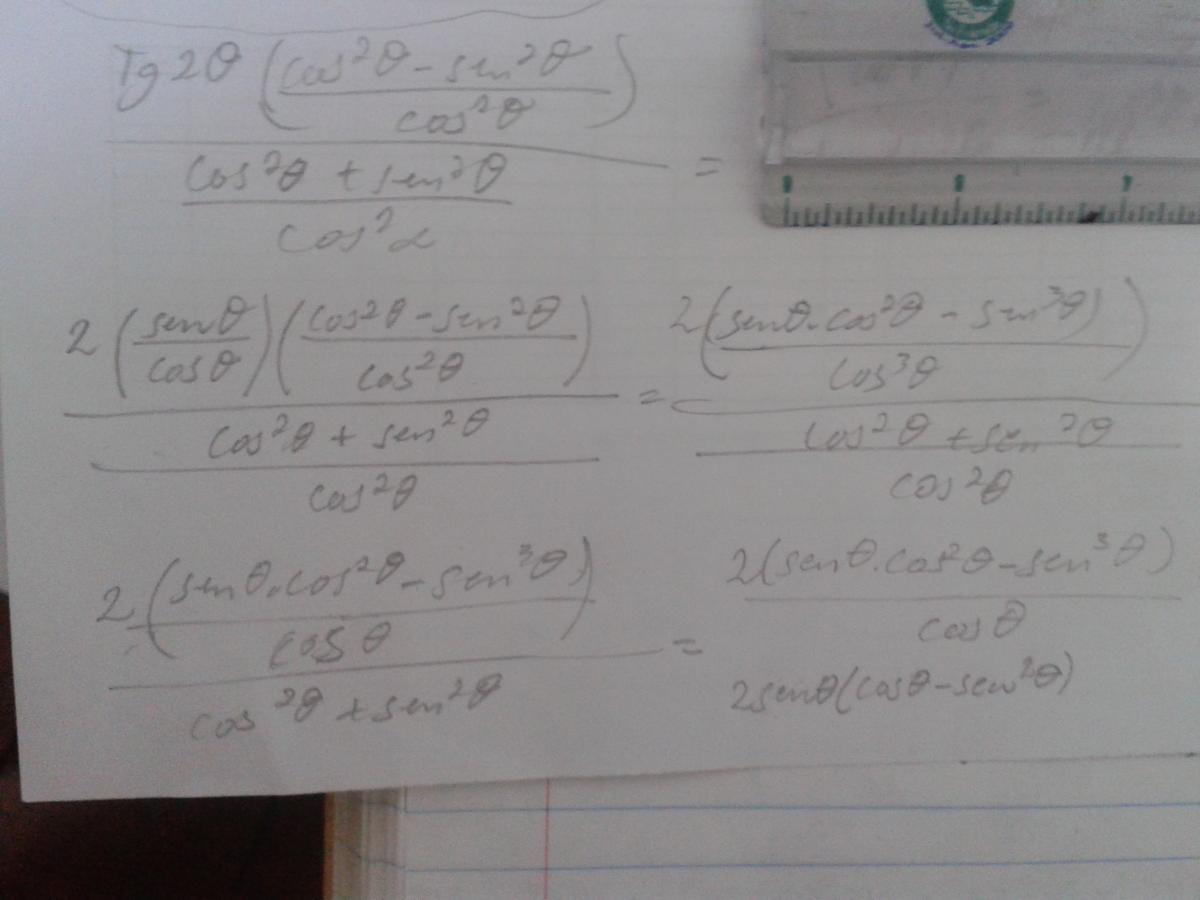 Tg 2θ ( (cos²θ - sen²θ) / cos²θ ) / ( (cos²θ + sen²θ) / cos²α ) =
2 (senθ / cosθ) ( (cos²θ - sen²θ) / cos²θ ) / ( (cos²θ + sen²θ) / cos²θ ) = 2 ( (senθ.cos²θ - sen³θ) / cos³θ ) / ( (cos²θ + sen²θ) / cos²θ )
2 ( (senθ.cos²θ - sen³θ) / cosθ ) / ( cos²θ + sen²θ ) = 2(senθ.cos²θ - sen³θ) / cosθ
2senθ(cosθ - sen²θ)